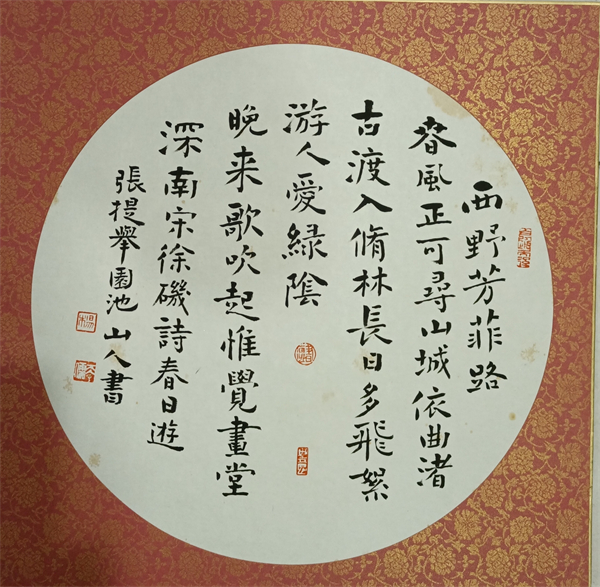 西野芳菲路
春風正可尋山城依曲渚
古渡入脩林長日多飛絮
游人愛緑陰
晚来歌吹起惟覺畫堂
深南宋徐磯詩春日遊
張提舉園池山人書